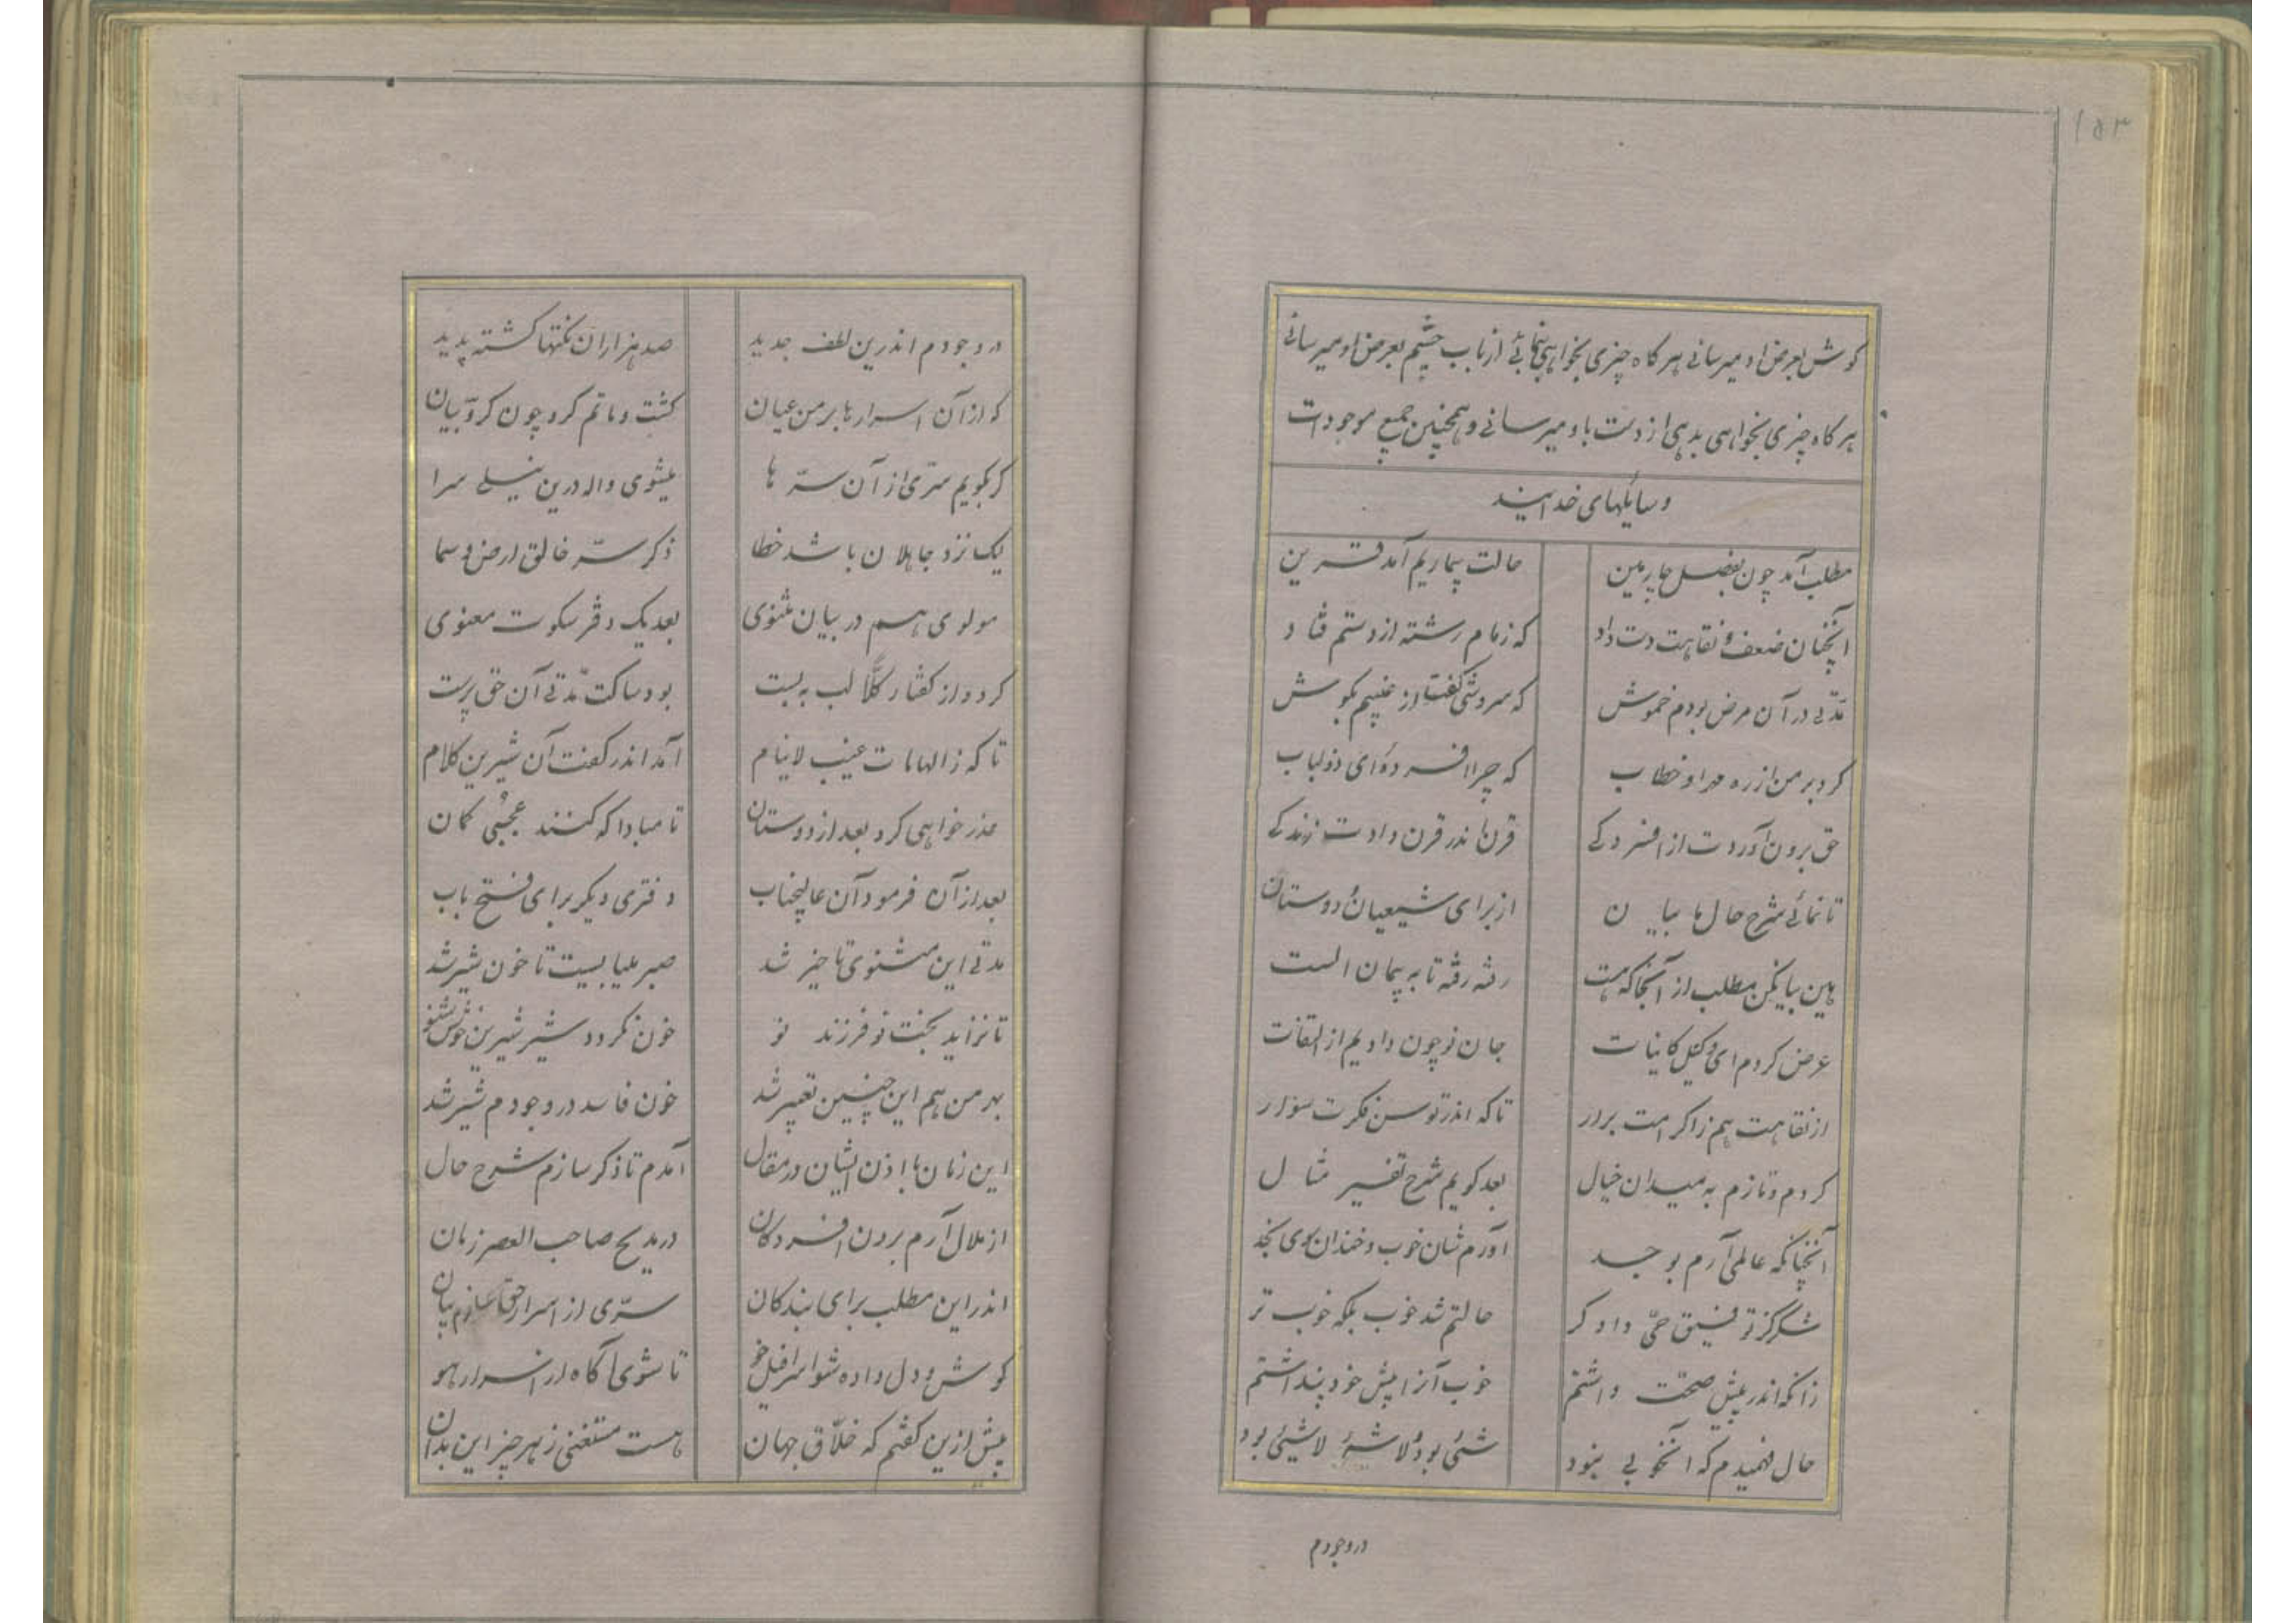 ۱۵۳
گوش بعرض او میرسانی هرگاه چیزی بخواهی بنمائی از باب چشم بعرض او میرسانی
هرگاه چیزی بخواهی بدهی از دست باو میرسانی و همچنین جمیع موجودات
وسایلهای خدایند
مطلب آمد چون بفصل چارمین حالت بیماریم آمد قرین
آنچنان ضعف و نقاهت دست داد که زمام رشته از دستم فتاد
مدّتی در آن مرض بودم خموش که سروشی گفت از غیبم بگوش
کرد بر من از ره مهر او خطاب که چرا افسردهٔ ای ذولباب
حق برون آوردت از افسردگی قرنها اندر قرن دادت زندگی
تا نمائی شرح حال ها بیان از برای شیعیان و دوستان
هین بیا بکن مطلب از آنجا که هست رفته رفته تا به پیمان الست
عرض کردم ای وکیل کاینات جان نو چون دادیم از التفات
از نقاهت هم ز اکرامت برار تا که اندر توسن فکرت سوار
کردم و تازم به میدان خیال بعد گویم شرح تفسیر مثال
آنچنانکه عالمی آرم بوجد آورم شان خوب و خندان سوی نجد
شکر کز توفیق حیّ دادگر حالتم شد خوب بلکه خوب تر
زانکه اندر پیش صحّت داشتم خوب آنرا پیش خود پنداشتم
حال فهمیدم که آنخوبی نبود شیئی بود و لاشیٔ لاشیئی بود
در وجودم
در وجودم اندرین لطف جدید صد هزاران نکتها گشته پدید
که از آن اسرارها بر من عیان گشت و ماتم کرد چون کرّوبیان
گر بگویم سرّی از آن سرّها میشوی واله درین نیلی سرا
لیک نزد جاهلان باشد خطا ذکر سرّ خالق ارض و سما
مولوی هم در بیان مثنوی بعد یک دفتر سکوت معنوی
کرد و از گفتار کلّاً لب به بست بود ساکت مدّتی آن حق پرست
تا که ز الهامات غیب لاینام آمد اندر گفت آن شیرین کلام
عذرخواهی کرد بعد از دوستان تا مبادا که کنند عجبی گمان
بعد از آن فرمود آن عالیجناب دفتری دیگر برای فتح باب
مدتی این مثنوی تاخیر شد صبر میبایست تا خون شیر شد
تا نزاید بخت نو فرزند نو خون نگردد شیر شیرین خوش شنو
بهر من هم این چنین تعبیر شد خون فاسد در وجودم شیر شد
این زمان با اذن ایشان در مقال آمدم تا ذکر سازم شرح حال
از ملال آرم برون افسردگان در مدیح صاحب العصر زمان
اندر این مطلب برای بندگان سرّی از اسرار حق سازم بیان
گوش و دل داده شو اسرافیل خو تا شوی آگاه از اسرار هو
پیش ازین گفتم که خلّاق جهان هست مستغنی ز هر چیز این بدان